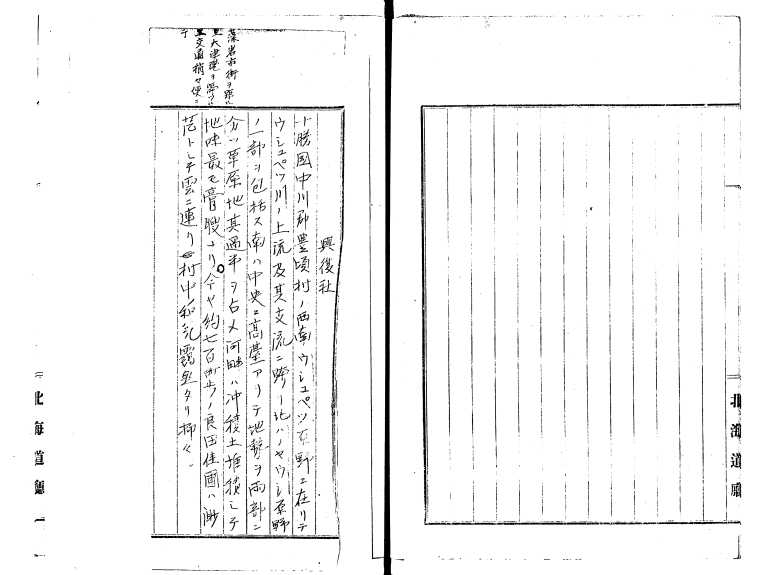 北海道廳
興復社
十勝國中川郡豊頃村ノ西南ウシュペツ原野ニ在リテ
ウシュペツ川ノ上流及其支流ニ跨リ北ハノヤウシ原野
ノ一部ヲ包括ス南ハ中央ニ高臺アリテ地勢ヲ両部ニ
分ツ草原地其過半ヲ占メ河畔ハ沖積土堆積シテ
地味最モ膏腴ナリ今ヤ約七百町歩ノ良田佳圃ハ渺
茫トシテ雲ニ連リ村中和氣靄然タリ抑々
藻岩市街ヲ距ル
里大津港ヲ
里交通稍々便ニ
シテ
北海道廳